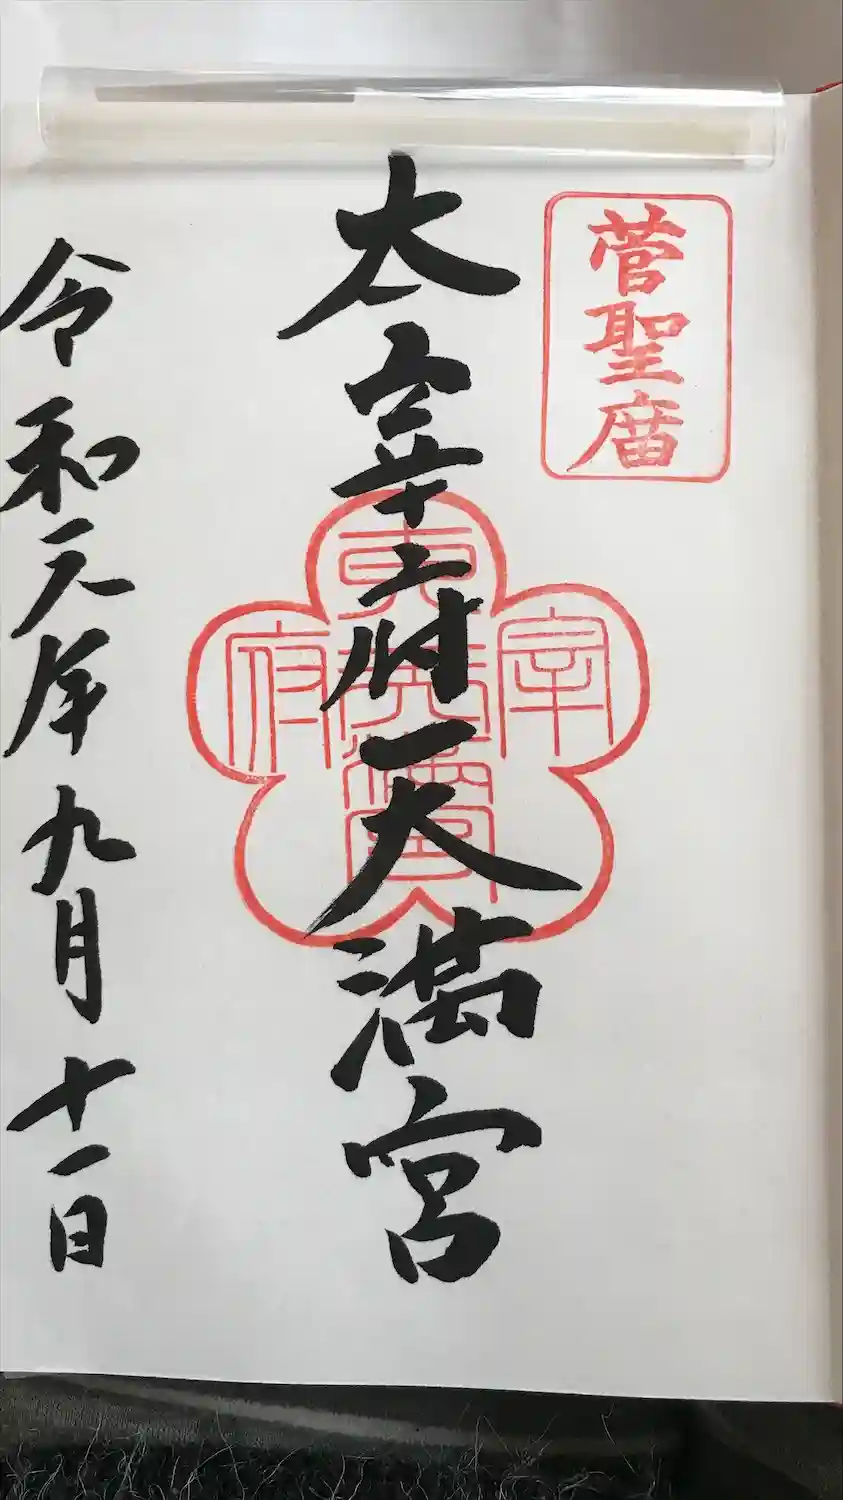 菅聖庿
太宰府天満宮
宰府
令和元年九月十一日